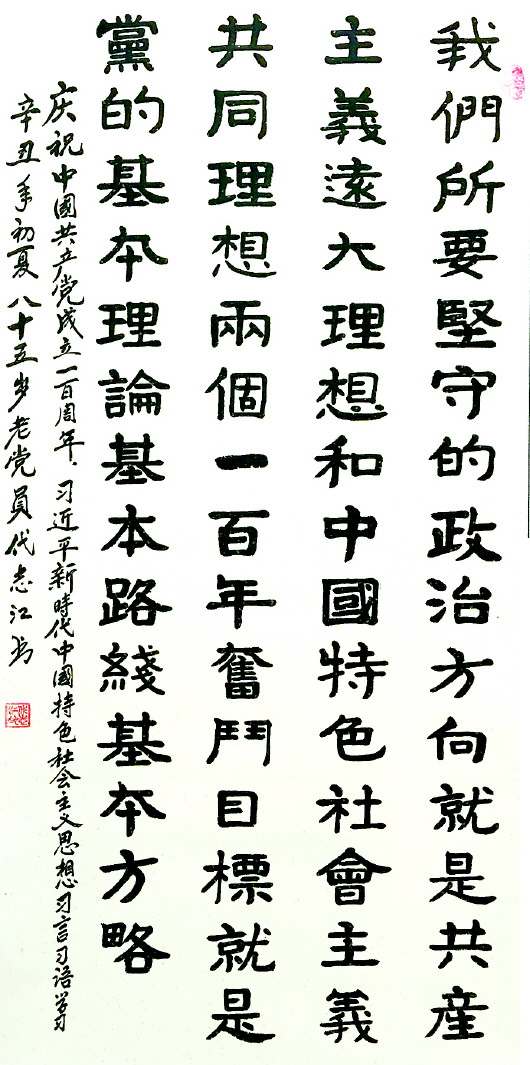 我們所要堅守的政治方向就是共産
主義遠大理想和中國特色社會主義
共同理想兩個一百年奮鬥目標就是
黨的基本理論基本路綫基本方略
庆祝中國共产党成立一百周年，习近平新時代中國特色社会主义思想习言习语学习
辛丑年初夏八十五岁老党員代志江书